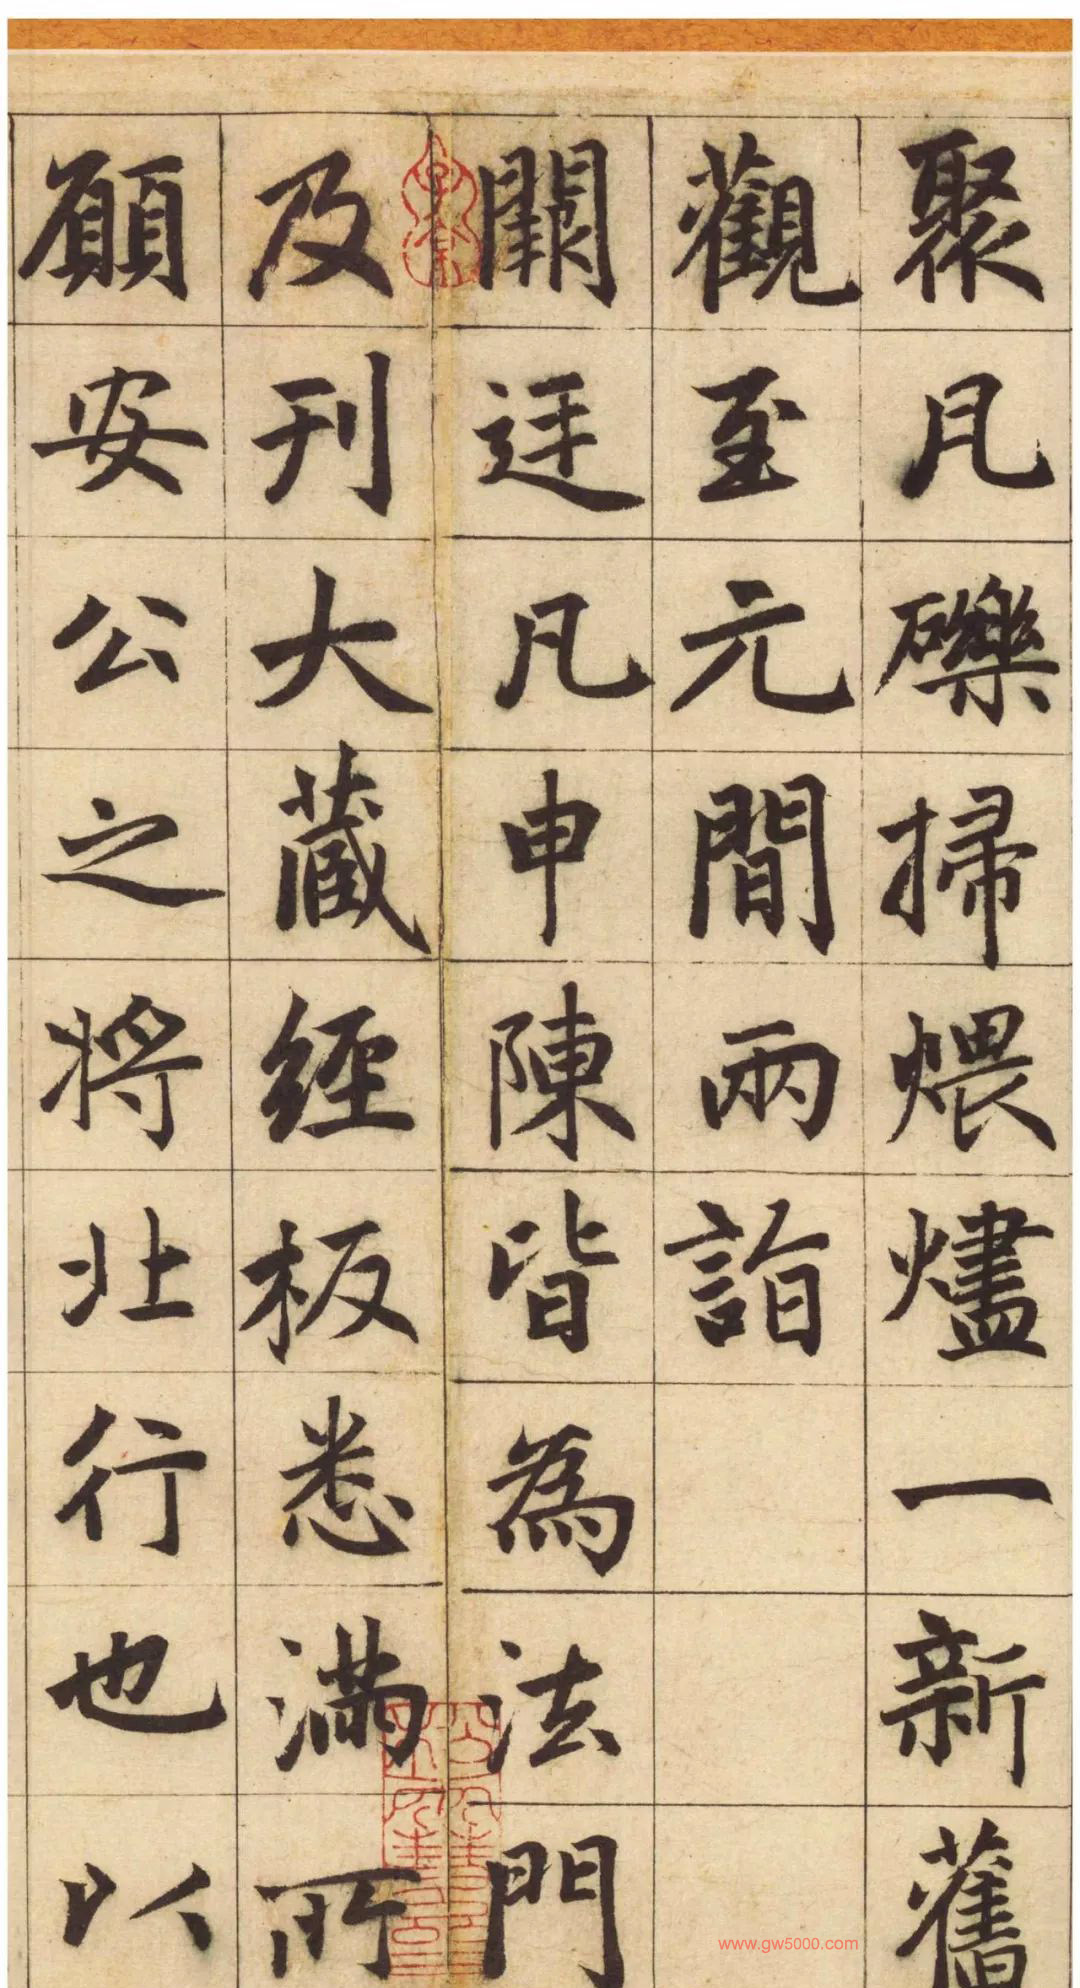 聚凡礫掃煨燼一新舊
觀至元間兩詣
闕廷凡申陳皆為法門
及刊大藏經板悉滿所
願安公之將北行也以
www.gw5000.com